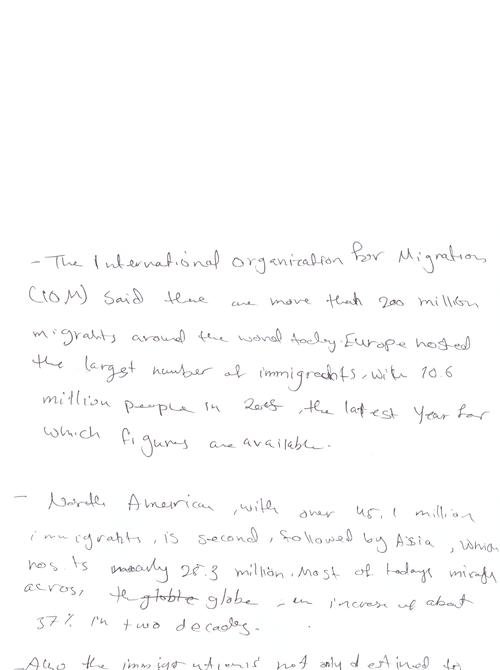 - The International Organization for Migration
(IOM) said there are more than 200 million
migrants around the world today. Europe hosted
the largest number of immigrants, with 70.6
million people in 2005, the latest year for
which figures are available.
- North American, with over 45.1 million
immigrants, is second, followed by Asia, which
hosts nearly 25.3 million. Most of todays
across, the globle globe - an increase of about
37% in two decades.
- Also the is not only destined to